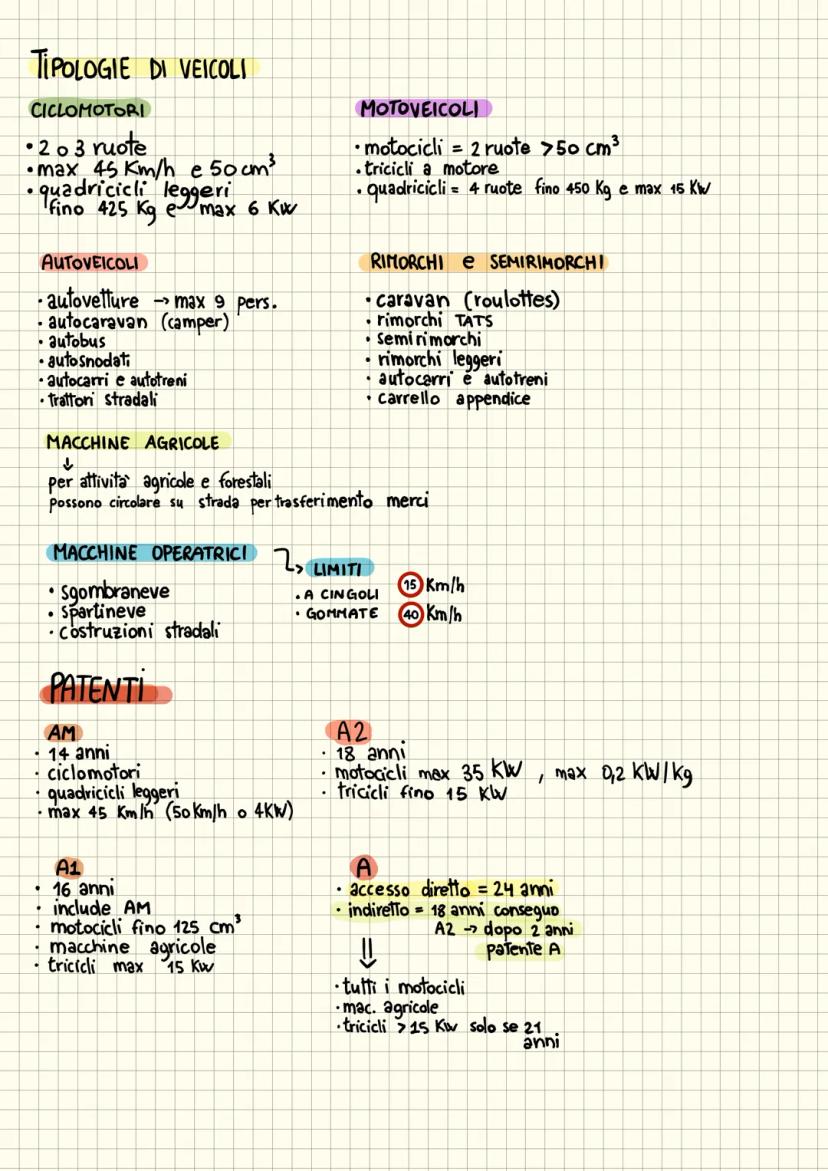 TIPOLOGIE DI VEICOLI
CICLOMOTORI
• 2 o 3 ruote
• max 45 Km/h e 50 cm³
• quadricicli leggeri
fino 425 Kg e max 6 KW
MOTOVEICOLI
• motocicli = 2 ruote >50 cm³
• tricicli a motore
• quadricicli = 4 ruote fino 450 Kg e max 15 KW
AUTOVEICOLI
• autovetture → max 9 pers.
• autocaravan (camper)
• autobus
• autosnodati
• autocarri e autotreni
• trattori stradali
RIMORCHI e SEMIRIMORCHI
• caravan (roulottes)
• rimorchi TATS
• semirimorchi
• rimorchi leggeri
• autocarri e autotreni
• carrello appendice
MACCHINE AGRICOLE
↓
per attività agricole e forestali
possono circolare su strada per trasferimento merci
MACCHINE OPERATRICI
• sgombraneve
• spartineve
• costruzioni stradali
LIMITI
• A CINGOLI 15 Km/h
• GOMMATE 40 Km/h
PATENTI
AM
• 14 anni
• ciclomotori
• quadricicli leggeri
• max 45 Km/h (50Km/h o 4KW)
A2
• 18 anni
• motocicli max 35 KW , max 0,2 KW/Kg
• tricicli fino 15 KW
A1
• 16 anni
• include AM
• motocicli fino 125 cm³
• macchine agricole
• tricicli max 15 KW
A
• accesso diretto = 24 anni
• indiretto = 18 anni conseguo
A2 → dopo 2 anni
patente A
• tutti i motocicli
• mac. agricole
• tricicli >15 KW solo se 21
anni